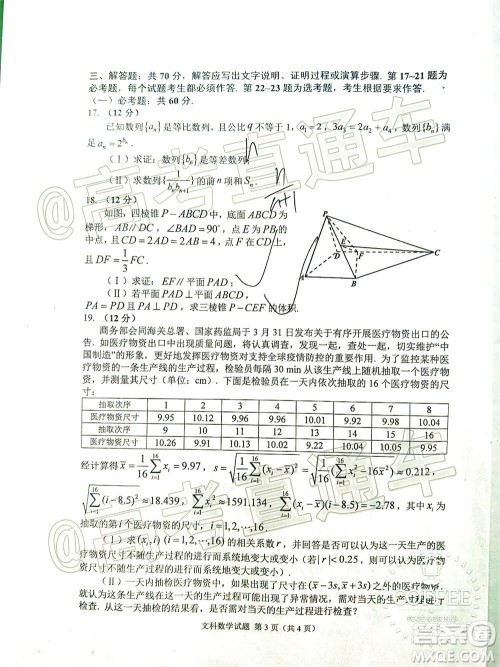 三、解答题：共 70 分，解答应写出文字说明、证明过程或演算步骤. 第 17~21 题为
必考题，每个试题考生都必须作答. 第 22~23 题为选考题，考生根据要求作答.
（一）必考题：共 60 分.
17. （12 分）
已知数列{aₙ}是等比数列，且公比 q 不等于 1，a₁ = 2，3a₃ = 2a₂ + a₄，数列{bₙ}满
足 aₙ = 2^{bₙ}.
（Ⅰ）求证：数列{bₙ}是等差数列；
n
（Ⅱ）求数列{1/(bₙbₙ₊₁)}的前 n 项和 Sₙ.
n/(n+1)
18. （12 分）
如图，四棱锥 P－ABCD 中，底面 ABCD 为
梯形，AB // DC，∠BAD = 90°，点 E 为 PB 的
中点，且 CD = 2AD = 2AB = 4，点 F 在 CD 上，
且 DF = 1/3 FC.
P
E
D
F
C
A
B
（Ⅰ）求证：EF // 平面 PAD；
（Ⅱ）若平面 PAD ⊥ 平面 ABCD，
PA = PD 且 PA ⊥ PD，求三棱锥 P－CEF 的体积.
19. （12 分）
商务部会同海关总署、国家药监局于 3 月 31 日发布关于有序开展医疗物资出口的公
告. 如医疗物资出口中出现质量问题，将认真调查，发现一起，查处一起，切实维护“中
国制造”的形象，更好地发挥医疗物资对支持全球疫情防控的重要作用. 为了监控某种医
疗物资的一条生产线的生产过程，检验员每隔 30 min 从该生产线上随机抽取一个医疗物
资，并测量其尺寸（单位：cm）. 下面是检验员在一天内依次抽取的 16 个医疗物资的尺
寸：
抽取次序 1 2 3 4 5 6 7 8
医疗物资尺寸 9.95 10.12 9.96 9.96 10.01 9.92 9.98 10.04
抽取次序 9 10 11 12 13 14 15 16
医疗物资尺寸 10.26 9.91 10.13 10.02 9.22 10.04 10.05 9.95
经计算得 x̄ = 1/16 ∑_{i=1}^{16} xᵢ = 9.97，s = √(1/16 ∑_{i=1}^{16} (xᵢ − x̄)²) = √(1/16 (∑_{i=1}^{16} xᵢ² − 16x̄²)) ≈ 0.212，
√(∑_{i=1}^{16} (i − 8.5)²) ≈ 18.439，∑_{i=1}^{16} xᵢ² ≈ 1591.134，∑_{i=1}^{16} (xᵢ − x̄)(i − 8.5) = −2.78，其中 xᵢ 为
抽取的第 i 个医疗物资的尺寸，i = 1,2,⋯,16.
（Ⅰ）求 (xᵢ,i) (i = 1,2,⋯,16) 的相关系数 r，并回答是否可以认为这一天生产的医
疗物资尺寸不随生产过程的进行而系统地变大或变小（若 |r| < 0.25，则可以认为医疗物
资的尺寸不随生产过程的进行而系统地变大或变小）.
（Ⅱ）一天内抽检医疗物资中，如果出现了尺寸在 (x̄ − 3s, x̄ + 3s) 之外的医疗物资，
就认为这条生产线在这一天的生产过程可能出现了异常情况，需对当天的生产过程进行检
查. 从这一天抽检的结果看，是否需对当天的生产过程进行检查？
文科数学试题 第 3 页（共 4 页）
@高考直通车
@高考直通车
@高考直通车